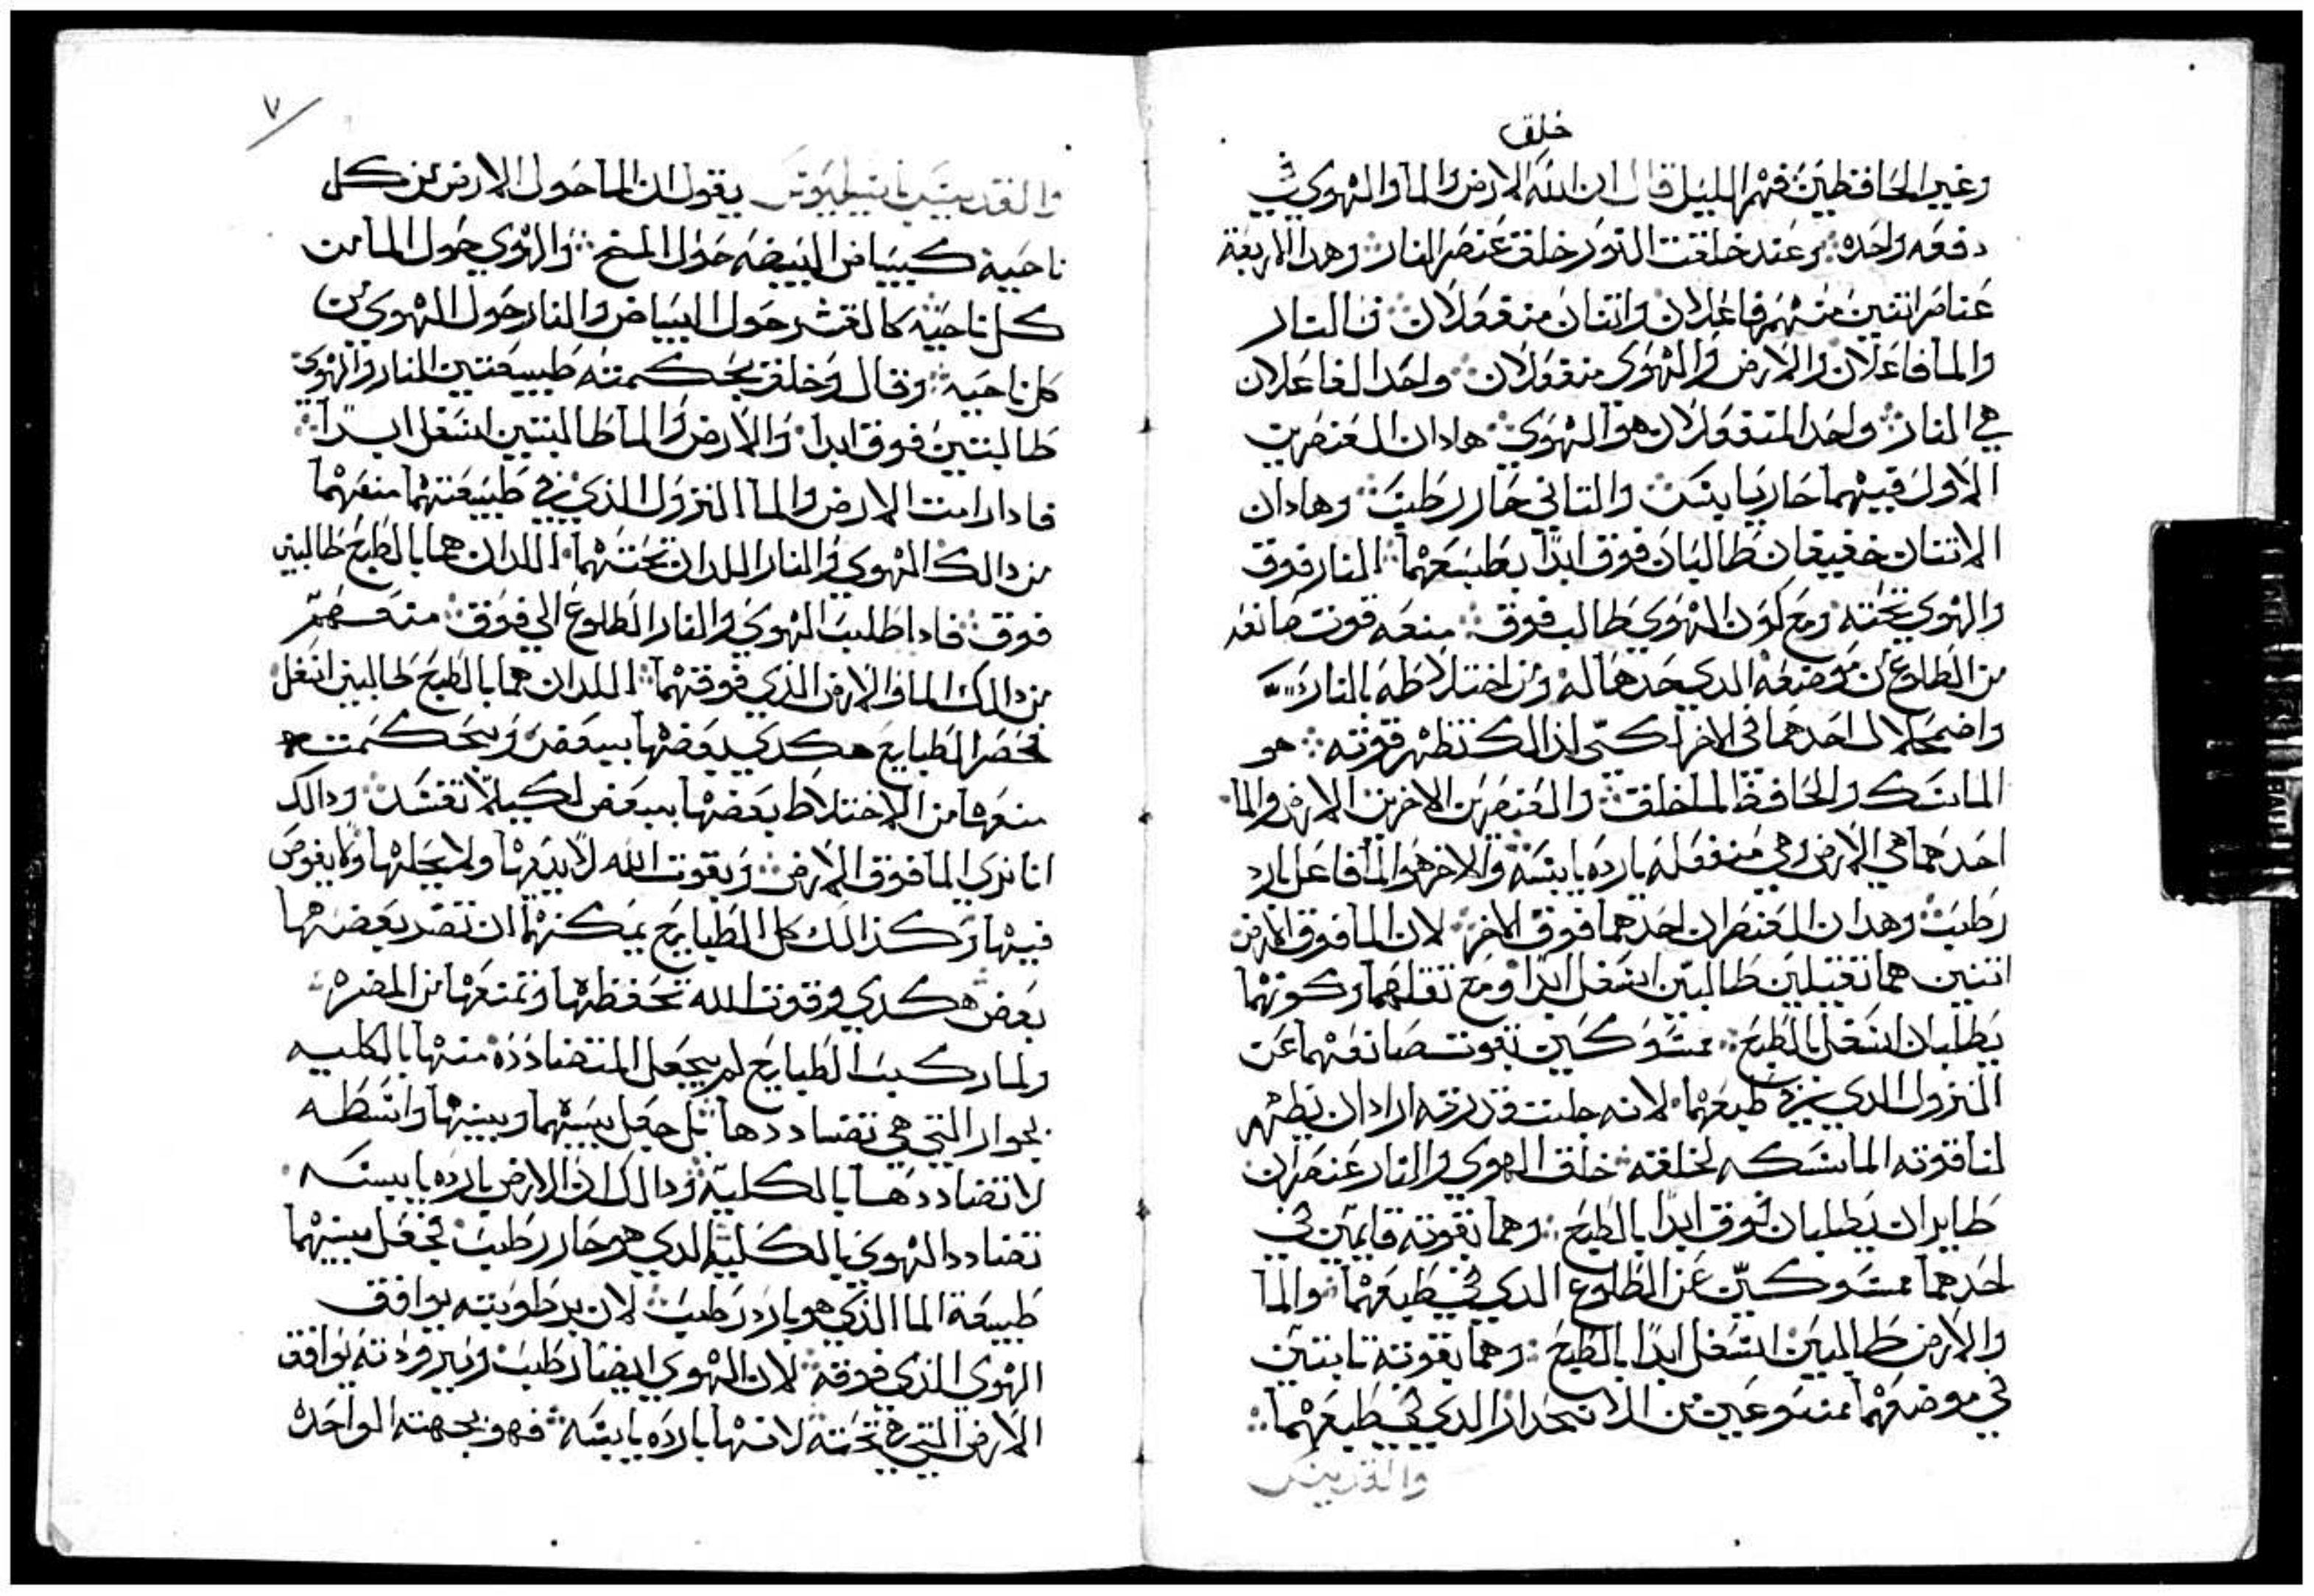 خلق
وغير الحافظين فهم الليل قال ان الله الارض والما والهوي في
دفعه واحده ومن عند خلقت النور خلق عنصر النار وهدا الاربعة
عناصر اتنين منهم فاعلان واتنان منفعولان فالنار
والما فاعلان والارض والهوي منفعولان واحد الفاعلان
هي النار واحد المنفعولان هو الهوي هادان العنصرين
الاول فيهما حار يابس والتاني حار رطب وهادان
الاتنان خفيفان طالبان فوق ابدا بطبعهما النار فوق
والهوي تحته ومع كون الهوي طالب فوق منعه قوت صانعه
من الطلوع من موضعه الدي حدها له ومن اختلاطه بالنار
واضمحلال احدهما في الاخر لكي ادالك تظهر قوته هو
الماسك والحافظ لما خلق والعنصرين الاخرين الارض والما
احدهما هي الارض وهي منفعله بارده يابسه والاخر هو الما فاعل بارد
رطب وهدان العنصران احدهما فوق الاخر لان الما فوق الارض
اتنين هما تقيلين طالبين اسفل ابدا ومع تقلهما وكونهما
يطلبان اسفل بالطبع ممسوكين بقوت صانعهما عن
النزول الدي في طبعهما لانه جلت قدرته اراد ان يظهر
لنا قوته الماسكه لخلقته خلق الهوي والنار عنصران
طايران يطلبان فوق ابدا بالطبع وهما بقوته قايمين في
احدهما ممسوكين عن الطلوع الدي في طبعهما والما
والارض طالبين اسفل ابدا بالطبع وهما بقوته تابتين
في موضعهما ممنوعين من الانحدار الدي في طبعهما
والقديس
٧
والقديس باسيليوس يقول ان الما حول الارض من كل
ناحية كبياض البيضه حول المخ والهوي حول الما من
كل ناحيه كالقشر حول البياض والنار حول الهوي من
كل ناحيه وقال وخلق بحكمته طبيعتين النار والهوي
طالبتين فوق ابدا والارض والما طالبتين اسفل ابدا
فادا رامت الارض والما النزول الذي في طبيعتهما منعهما
من دالك الهوي والنار اللدان تحتهما اللدان هما بالطبع طالبين
فوق فادا طلب الهوي والنار الطلوع الي فوق منعهم
من دالك الما والارض الذي فوقهما اللدان هما بالطبع طالبين اسفل
فحصر الطبايع هكدي بعضها ببعض وبحكمته
منعها من الاختلاط بعضها ببعض لكيلا تفسد ودالك
انا نري الما فوق الارض وبقوت الله لا يديبها ولا يحلها ولا يغوص
فيها وكذالك كل الطبايع يمكنهما ان تضر بعضها
بعض هكدي وقوت الله تحفظها وتمنعها من المضره
ولما ركب الطبايع لم يجعل المتضادده منها بالكليه
بجوار التي هي تضاددها بل جعل بينهما وبينها واسطه
لا تضاددها بالكلية ودالك ان الارض بارده يابسه
تضادد الهوي بالكليه الدي هو حار رطب فجعل بينهما
طبيعة الما الذي هو بارد رطب لان برطوبته يوافق
الهوي الذي فوقه لان الهوي ايضا رطب وببرودته يوافق
الارض التي هي تحته لانها بارده يابسه فهو بجهته الواحده